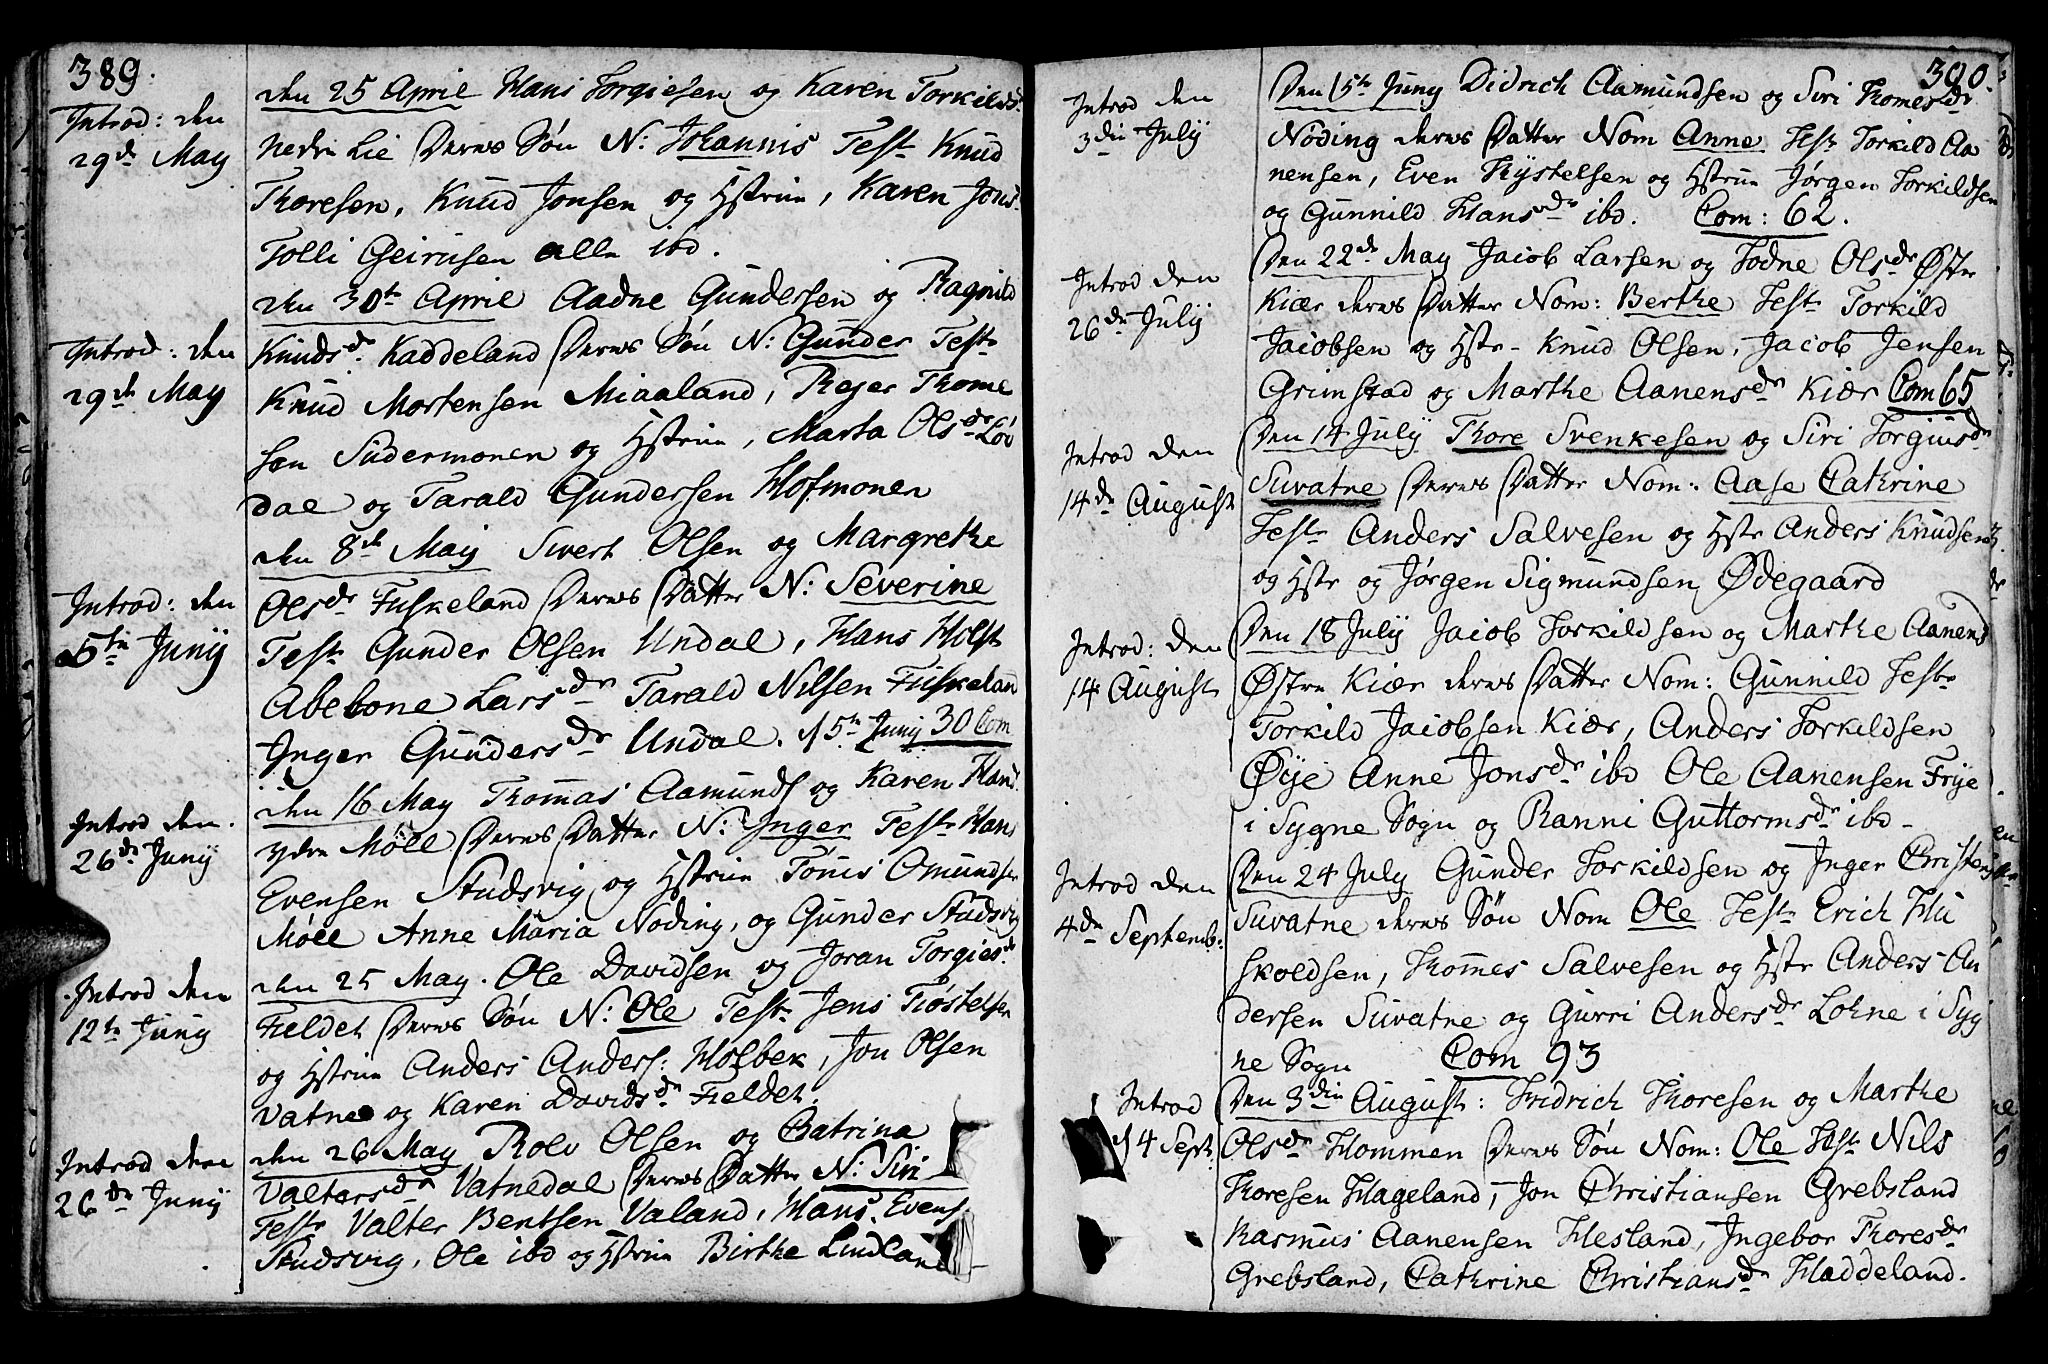 389.
Introd: den
29de May
den 25 April Hans Torgiesen og Karen Torkildsdr
nedre Lie Deres Søn N: Johannis Test Knud
Thoresen, Knud Jonsen og Hstrue, Karen Jons
Tolli Geirusen alle ibd.
Introd: den
29de May
den 30te April Aadne Gundersen og Ragnild
Knudsdr Kaddeland Deres Søn N: Gunder Teste
Knud Mortensen Miaaland, Rejer Thome
sen Sudermonen og Hstrue, Marta Olsdr Løv
dal og Tarald Gundersen Hofmonen
Introd: den
5te Junij
den 8de Maij Sivert Olsen og Margrethe
Olsdr Fuskeland Deres Datter N: Severine
Test Gunder Olsen Undal, Hans Holst
Abelone Larsdr Tarald Nilsen Fuskeland
Inger Gundersdr Undal. d 5te Junij 30 Com
Introd den
26de Junij
den 16 May Thommas Aamunds og Karen Hans
ydre Møll Deres Datter N: Inger Teste Hans
Evensen Studsvig og Hstrue Tønis Omundsen
Møll Anne Maria Nøding, og Gunder Studsvig
Introd den
12te Juny
den 25 May. Ole Davidsen og Joran Torgiesdr
Fieldet Deres Søn N: Ole Test Jens Tiøstelsen
og Hstrue Anders Anders: Holbek, Jon Olsen
Vatne og Karen Davidsdr Fieldet.
Introd den
26de Junij
den 26 May Rolv Olsen og Catrina
Valtersdr Vatnedal Deres Datter N: Siri
Teste Valter Bentsen Valand, Hans Evens
Studsvig, Ole ibd og Hstrue Birthe Lindland
390.
Introd den
3die Julij
Den 15te Juny Didrich Aamundsen og Siri Thomesdr
Nøding deres Datter Nom Anne Test Torkild Aa
nensen, Even Thystelsen og Hstrue Jørgen Torkildsen
og Gunnild Hansdr ibd. Com: 62.
Introd den
26de Julij
Den 22de May Jacob Larsen og Todne Olsdr Østre
Kiær deres Datter Nom: Berthe Teste Torkild
Jacobsen og Hstr- Knud Olsen, Jacob Jensen
Grimstad og Marthe Aanensdr Kiær Com 65
Introd den
14de August
Den 14 Julij Thore Svenkesen og Siri Torgiusdr
Suvatne Deres Datter Nom: Aase Cathrine
Teste Anders Salvesen og Hstr Anders Knudsen
og Hstr og Jørgen Sigmundsen Ødegaard
Introd: den
14 August
Den 18 Julij Jacob Torkildsen og Marthe Aanens
Østre Kiær deres Datter Nom: Gunnild Teste
Torkild Jacobsen Kiær, Anders Torkildsen
Øye Anne Jonsdr ibd Ole Aanensen Frye
i Sygne Sogn og Ranni Guttormsdr ibd-
Introd den
4de Septemb:
Den 24 July Gunder Torkildsen og Inger Christensdr
Suvatne deres Søn Nom Ole Teste Erich Hu
skoldsen, Thommes Salvesen og Hstr Anders An
dersen Suvatne og Gurri Andersdr Lohne i Syg
ne Sogn Com 93
Introd
d 4 Sept:
Den 3die August: Fridrich Thoresen og Marthe
Olsdr Hommen Deres Søn Nom: Ole Test Nils
Thoresen Hageland, Jon Christiansen Grebsland
Rasmus Aanensen Hesland, Ingebor Thoresdr
Grebsland, Cathrine Christiansdr Haddeland.